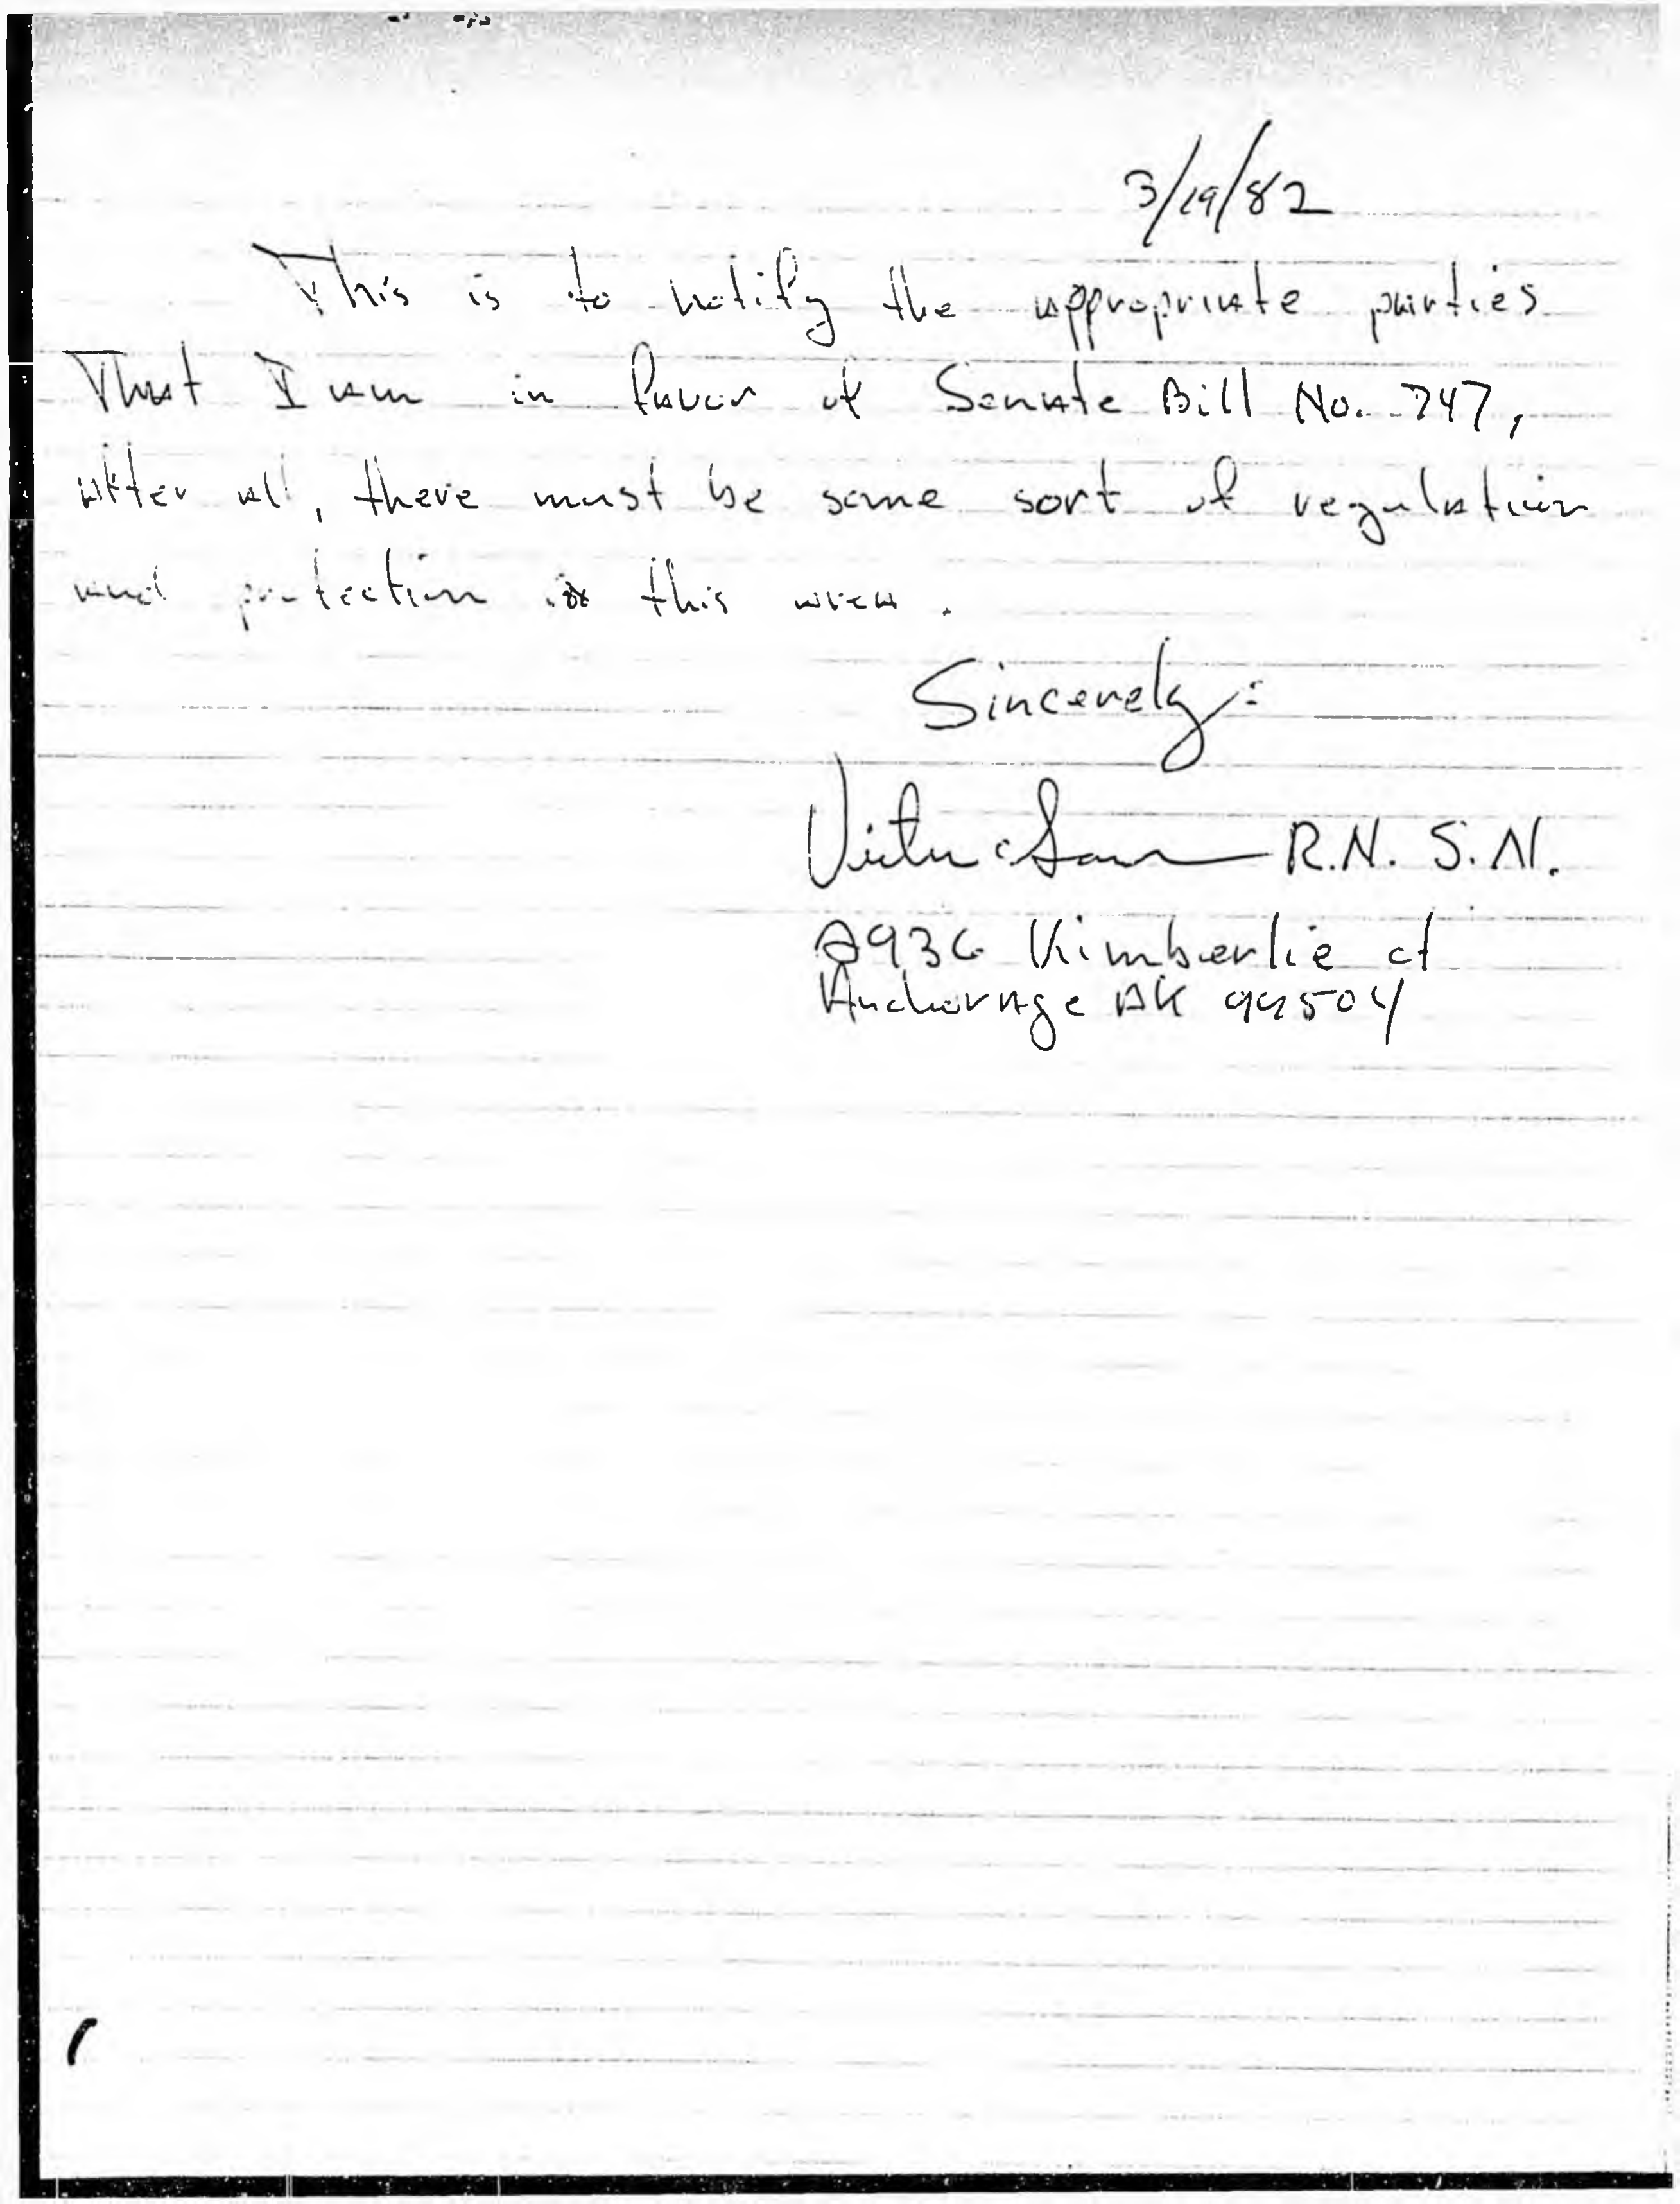 3/19/82
This is to notify the appropriate parties
That I am in favor of Senate Bill No. 747,
after all, there must be some sort of regulation
and protection in this area.
Sincerely:
R.N. S.N.
2936 Kimberlie ct
Anchorage AK 99504